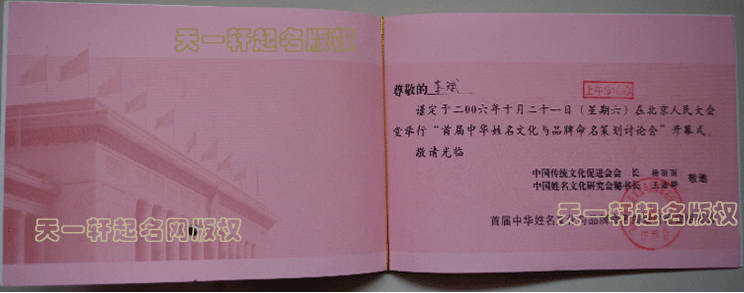 天一轩起名版权
天一轩起名网版权
上午9:00
尊敬的 李斌
谨定于二00六年十月二十一日（星期六）在北京人民大会
堂举行“首届中华姓名文化与品牌命名策划讨论会”开幕式。
敬请光临
中国传统文化促进会会 长 杨丽丽
中国姓名文化研究会秘书长 王 敬邀
首届中华姓名文化与品牌
天一轩起名网版权